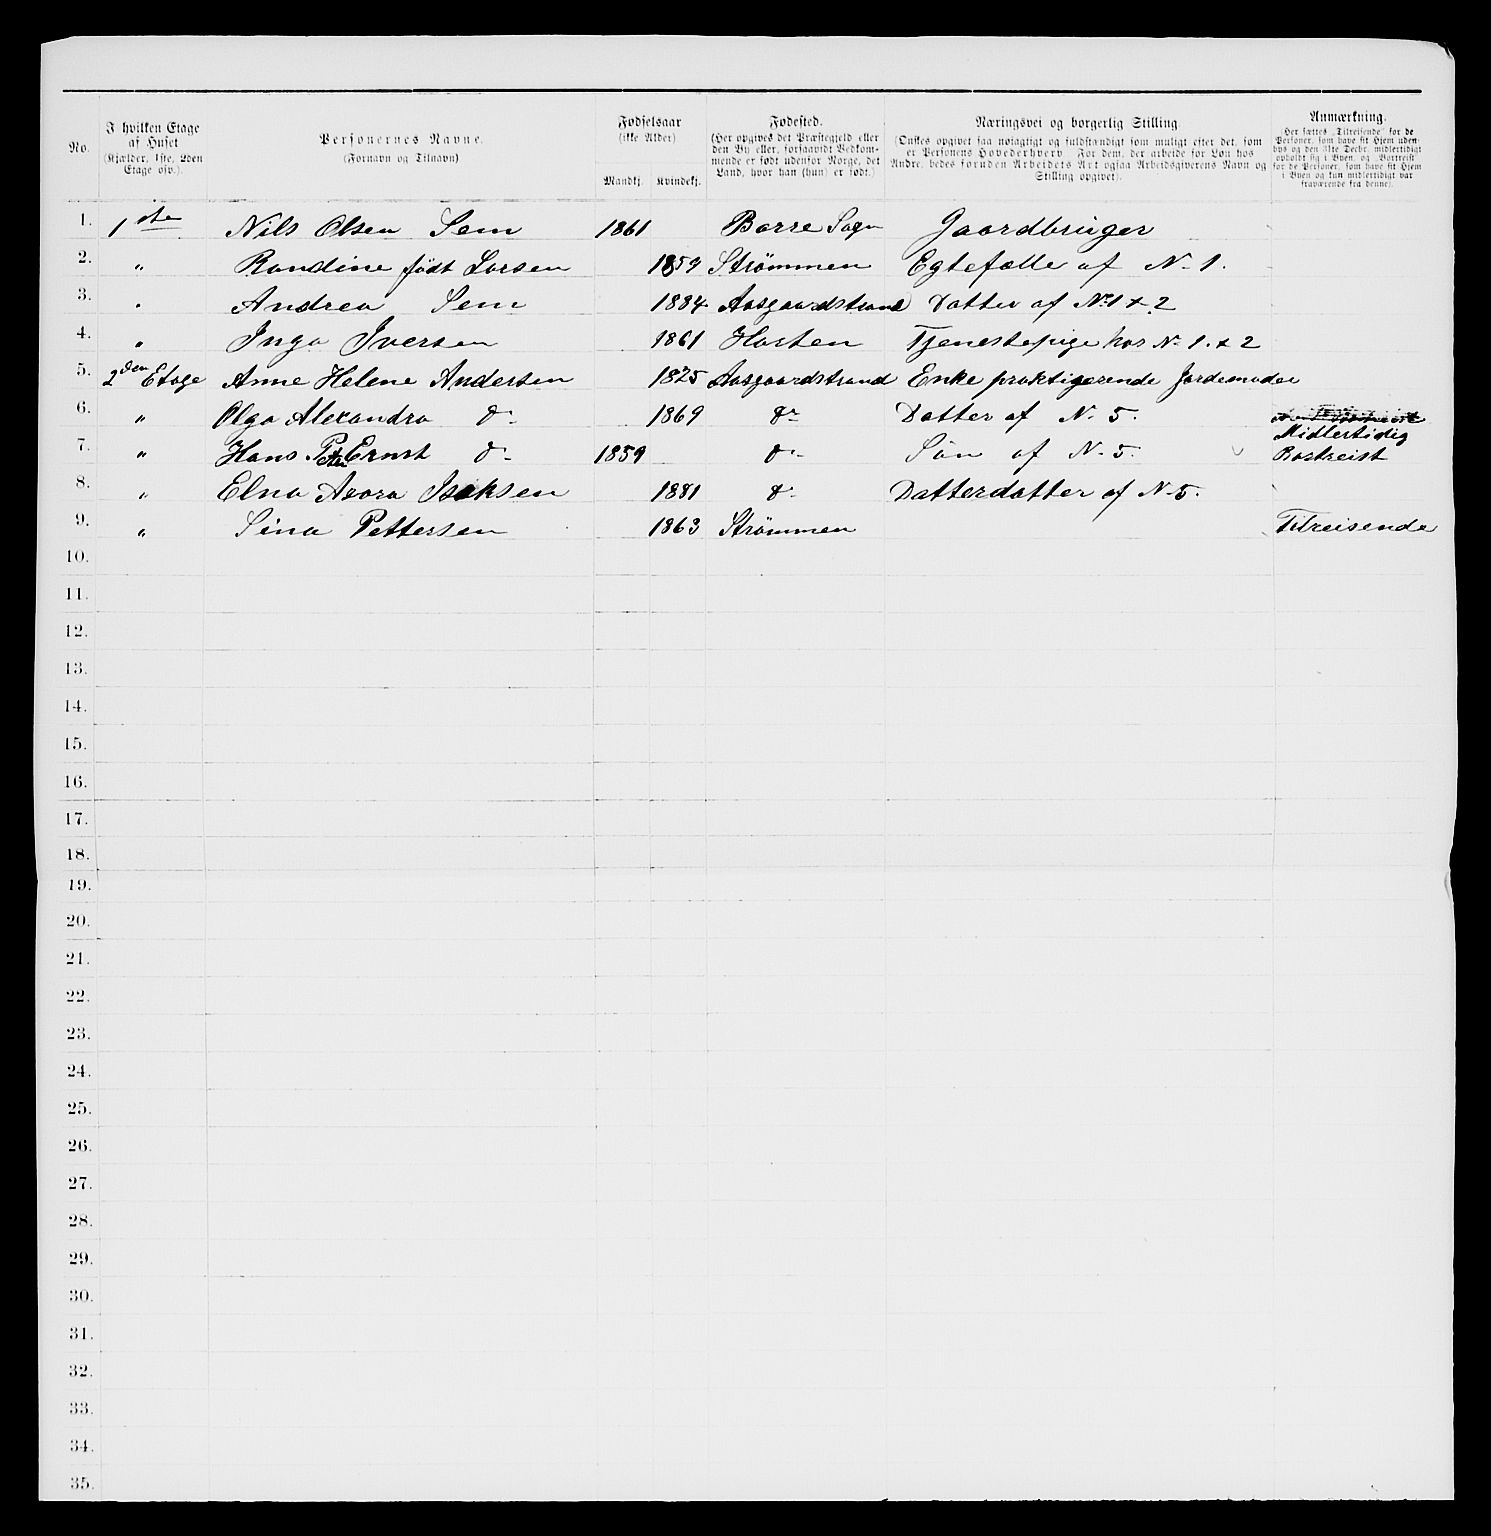 No. | I hvilken Etage af Huset (Kjælder, 1ste, 2den Etage osv.). | Personernes Navne. (Fornavn og Tilnavn) | Fødselsaar (ikke Alder) Mandkj. Kvindekj. | Fødested. (Her opgives det Præstegjeld eller den By eller, forsaavidt Vedkommende er født udenfor Norge, det Land, hvor han (hun) er født.) | Næringsvei og borgerlig Stilling. (Ønskes opgivet saa nøiagtigt og fuldstændigt som muligt efter det, som er Personens Hovederhverv. For dem, der arbeide for Løn hos Andre, bedes foruden Arbeidets Art ogsaa Arbeidsgiverens Navn og Stilling opgivet). | Anmærkning. Her sættes „Tilreisende" for de Personer, som have sit Hjem udenbys og den 31te Decbr. midlertidigt opholdt sig i Byen, og „Bortreist" for de Personer, som have sit Hjem i Byen og kun midlertidigt var fraværende fra denne).
1. 1ste Nils Olsen Sem 1861 Borre Sogn Gaardbruger
2. " Randine født Larsen 1859 Strømmen Egtefælle af N. 1.
3. " Andrea Sem 1884 Aasgaardstrand Datter af No 1 + 2
4. " Inga Iversen 1861 Horten Tjenestepige hos N. 1. + 2
5. 2den Etage Anne Helene Andersen 1825 Aasgaardstrand Enke praktigerende Jordemoder
6. " Olga Alexandra do 1869 do Datter af N. 5.
7. " Hans Peter Ernst do 1859 do Søn af N. 5. Midlertidig Bortreist
8. " Elna Avora Isaksen 1881 do Datterdatter af N. 5.
9. " Sina Pettersen 1863 Strømmen Tilreisende
10.
11.
12.
13.
14.
15.
16.
17.
18.
19.
20.
21.
22.
23.
24.
25.
26.
27.
28.
29.
30.
31.
32.
33.
34.
35.